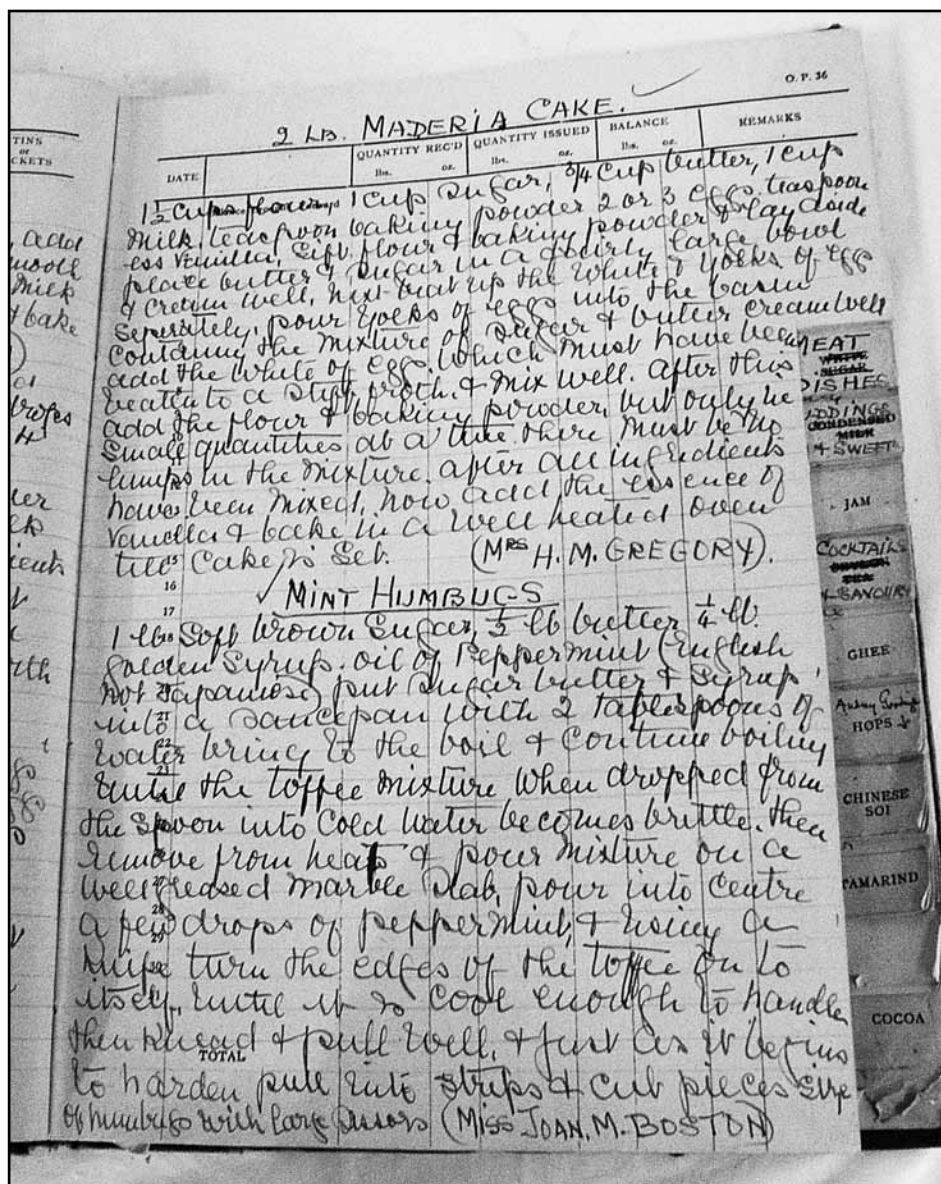 O. P. 36
2 LB. MADERIA CAKE.
TINS
or
CKETS
DATE
QUANTITY REC'D
QUANTITY ISSUED
BALANCE
REMARKS
lbs. oz. lbs. oz. lbs. oz.
1 1/2 cups flour 1 cup sugar, 3/4 cup butter, 1 cup
milk, teaspoon baking powder 2 or 3 eggs. teaspoon
ess vanilla, Sift flour & baking powder & lay aside
place butter & sugar in a fairly large bowl
& cream well, next beat up the white & yolks of egg
seperately, pour yolks of eggs into the basin
containing the mixture of sugar & butter cream well
add the white of eggs. which must have been
beaten to a stiff froth, & mix well. after this
add the flour & baking powder, but only in
small quantities at a time. there must be no
lumps in the mixture. after all ingredients
have been mixed, now add the essence of
vanilla & bake in a well heated oven
till 15 Cake is Set. (MRS H. M. GREGORY).
16
MINT HUMBUGS
17
1 lb 18 Soft brown Sugar, 1/2 lb butter 1/4 lb.
golden Syrup. oil of Peppermint (English
not Japanise) put sugar butter & Syrup
into 21 a saucepan with 2 tablespoons of
water 22 bring to the boil & continue boiling
23
until the toffee mixture when dropped from
the spoon into cold water becomes brittle. then
remove from heat & pour mixture on a
well 27 greased marble slab, pour into centre
28
a few drops of peppermint, & using a
29
knife turn the edges of the toffee on to
itself, until it is cool enough to handle
then knead & pull well, & just as it begins
TOTAL
to harden pull into strips & cut pieces size
of humbugs with large scissors (MISS JOAN. M. BOSTON)
, add
milk
& bake
EAT
WHITE
SUGAR
DISHES
DDINGS
CONDENSED
MILK
& SWEETS
JAM
COCKTAILS
TEA
& SAVOURY
GHEE
HOPS
CHINESE
SOI
TAMARIND
COCOA